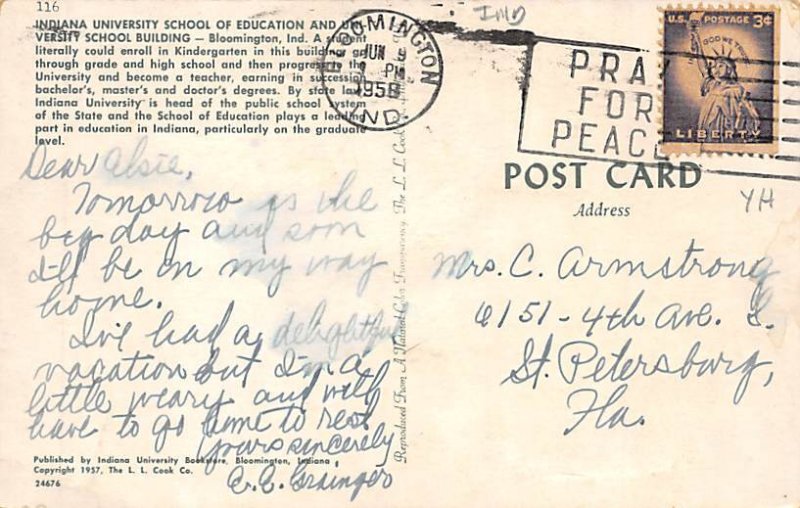 116
IND
INDIANA UNIVERSITY SCHOOL OF EDUCATION AND UNI-
VERSITY SCHOOL BUILDING — Bloomington, Ind. A student
literally could enroll in Kindergarten in this building, go
through grade and high school and then progress to the
University and become a teacher, earning in succession
bachelor's, master's and doctor's degrees. By state law
Indiana University is head of the public school system
of the State and the School of Education plays a leading
part in education in Indiana, particularly on the graduate
level.
BLOOMINGTON
JUN
PM
1958
IND.
PRAY
FOR
PEACE
U.S. POSTAGE 3¢
IN GOD WE TRUST
LIBERTY
POST CARD
Address
YH
Dear Elsie,
Tomorrow is the
big day and soon
I'll be on my way
home.
I've had a delightful
vacation but I'm a
little weary and will
have to go home to rest
Yours sincerely
C. C. Grainger
Mrs. C. Armstrong
6151 - 4th Ave. S.
St. Petersburg,
Fla.
Reproduced From A Natural Color Transparency The L. L. Cook
Published by Indiana University Bookstore, Bloomington, Indiana
Copyright 1957, The L. L. Cook Co.
24676